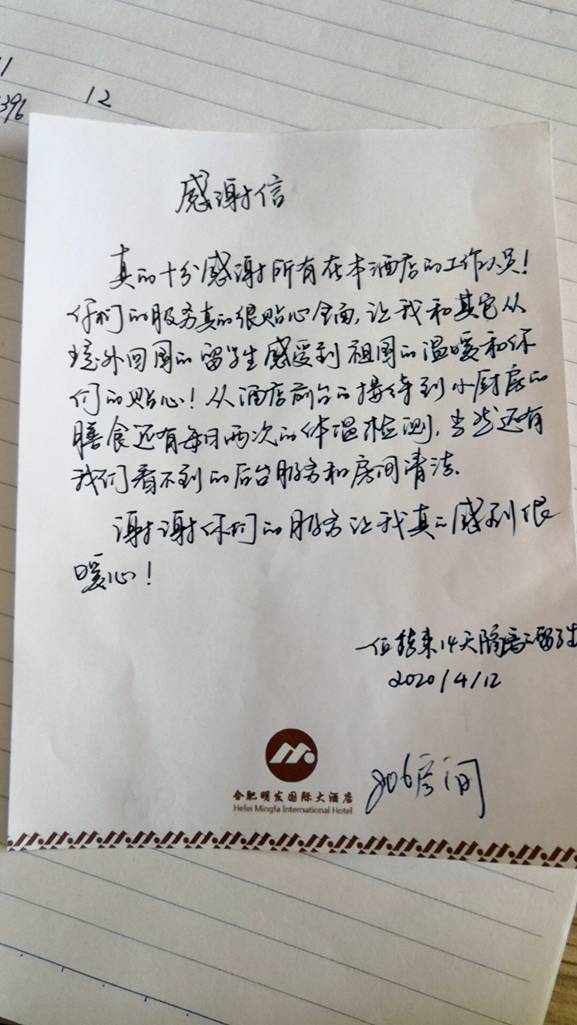 11
396 12
感谢信
真的十分感谢所有在本酒店的工作人员!
你们的服务真的很贴心全面,让我和其它从
境外回国的留学生感受到祖国的温暖和你
们的贴心!从酒店前台的接待到小厨房的
膳食还有每日两次的体温检测,当然还有
我们看不到的后台服务和房间清洁.
谢谢你们的服务让我真的感到很
暖心!
一位结束14天隔离的留学生
2020/4/12
合肥明发国际大酒店
Hefei Mingfa International Hotel
806房间